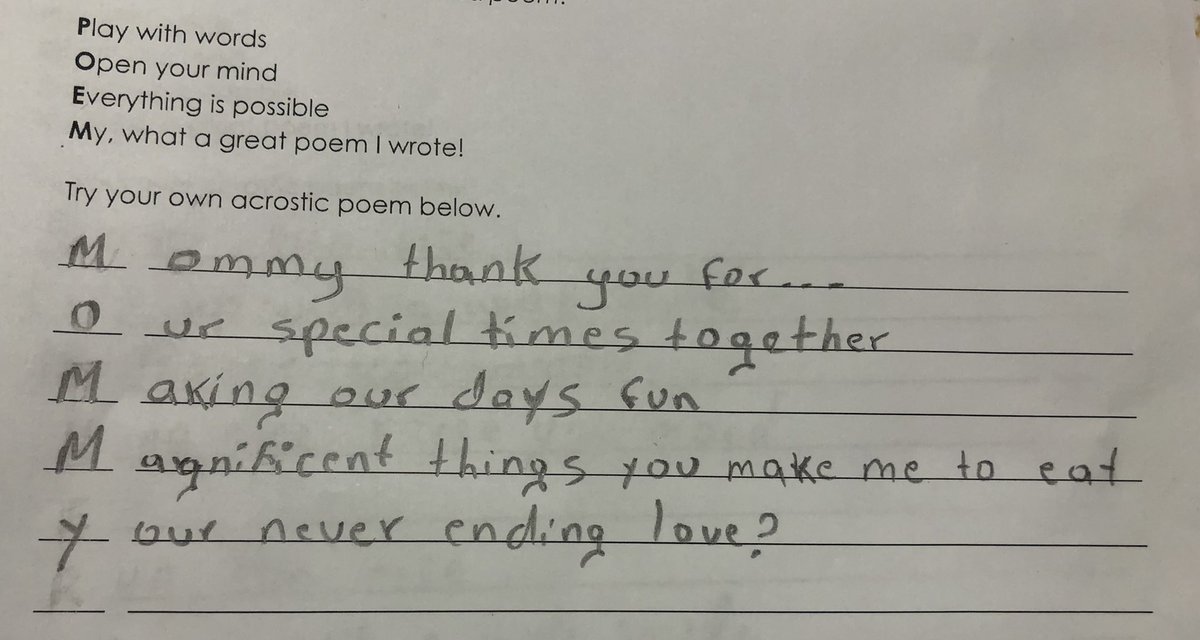 poem.
Play with words
Open your mind
Everything is possible
My, what a great poem I wrote!
Try your own acrostic poem below.
M ommy thank you for...-
O ur special times together
M aking our days fun
M agnificent things you make me to eat
Y our never ending love?